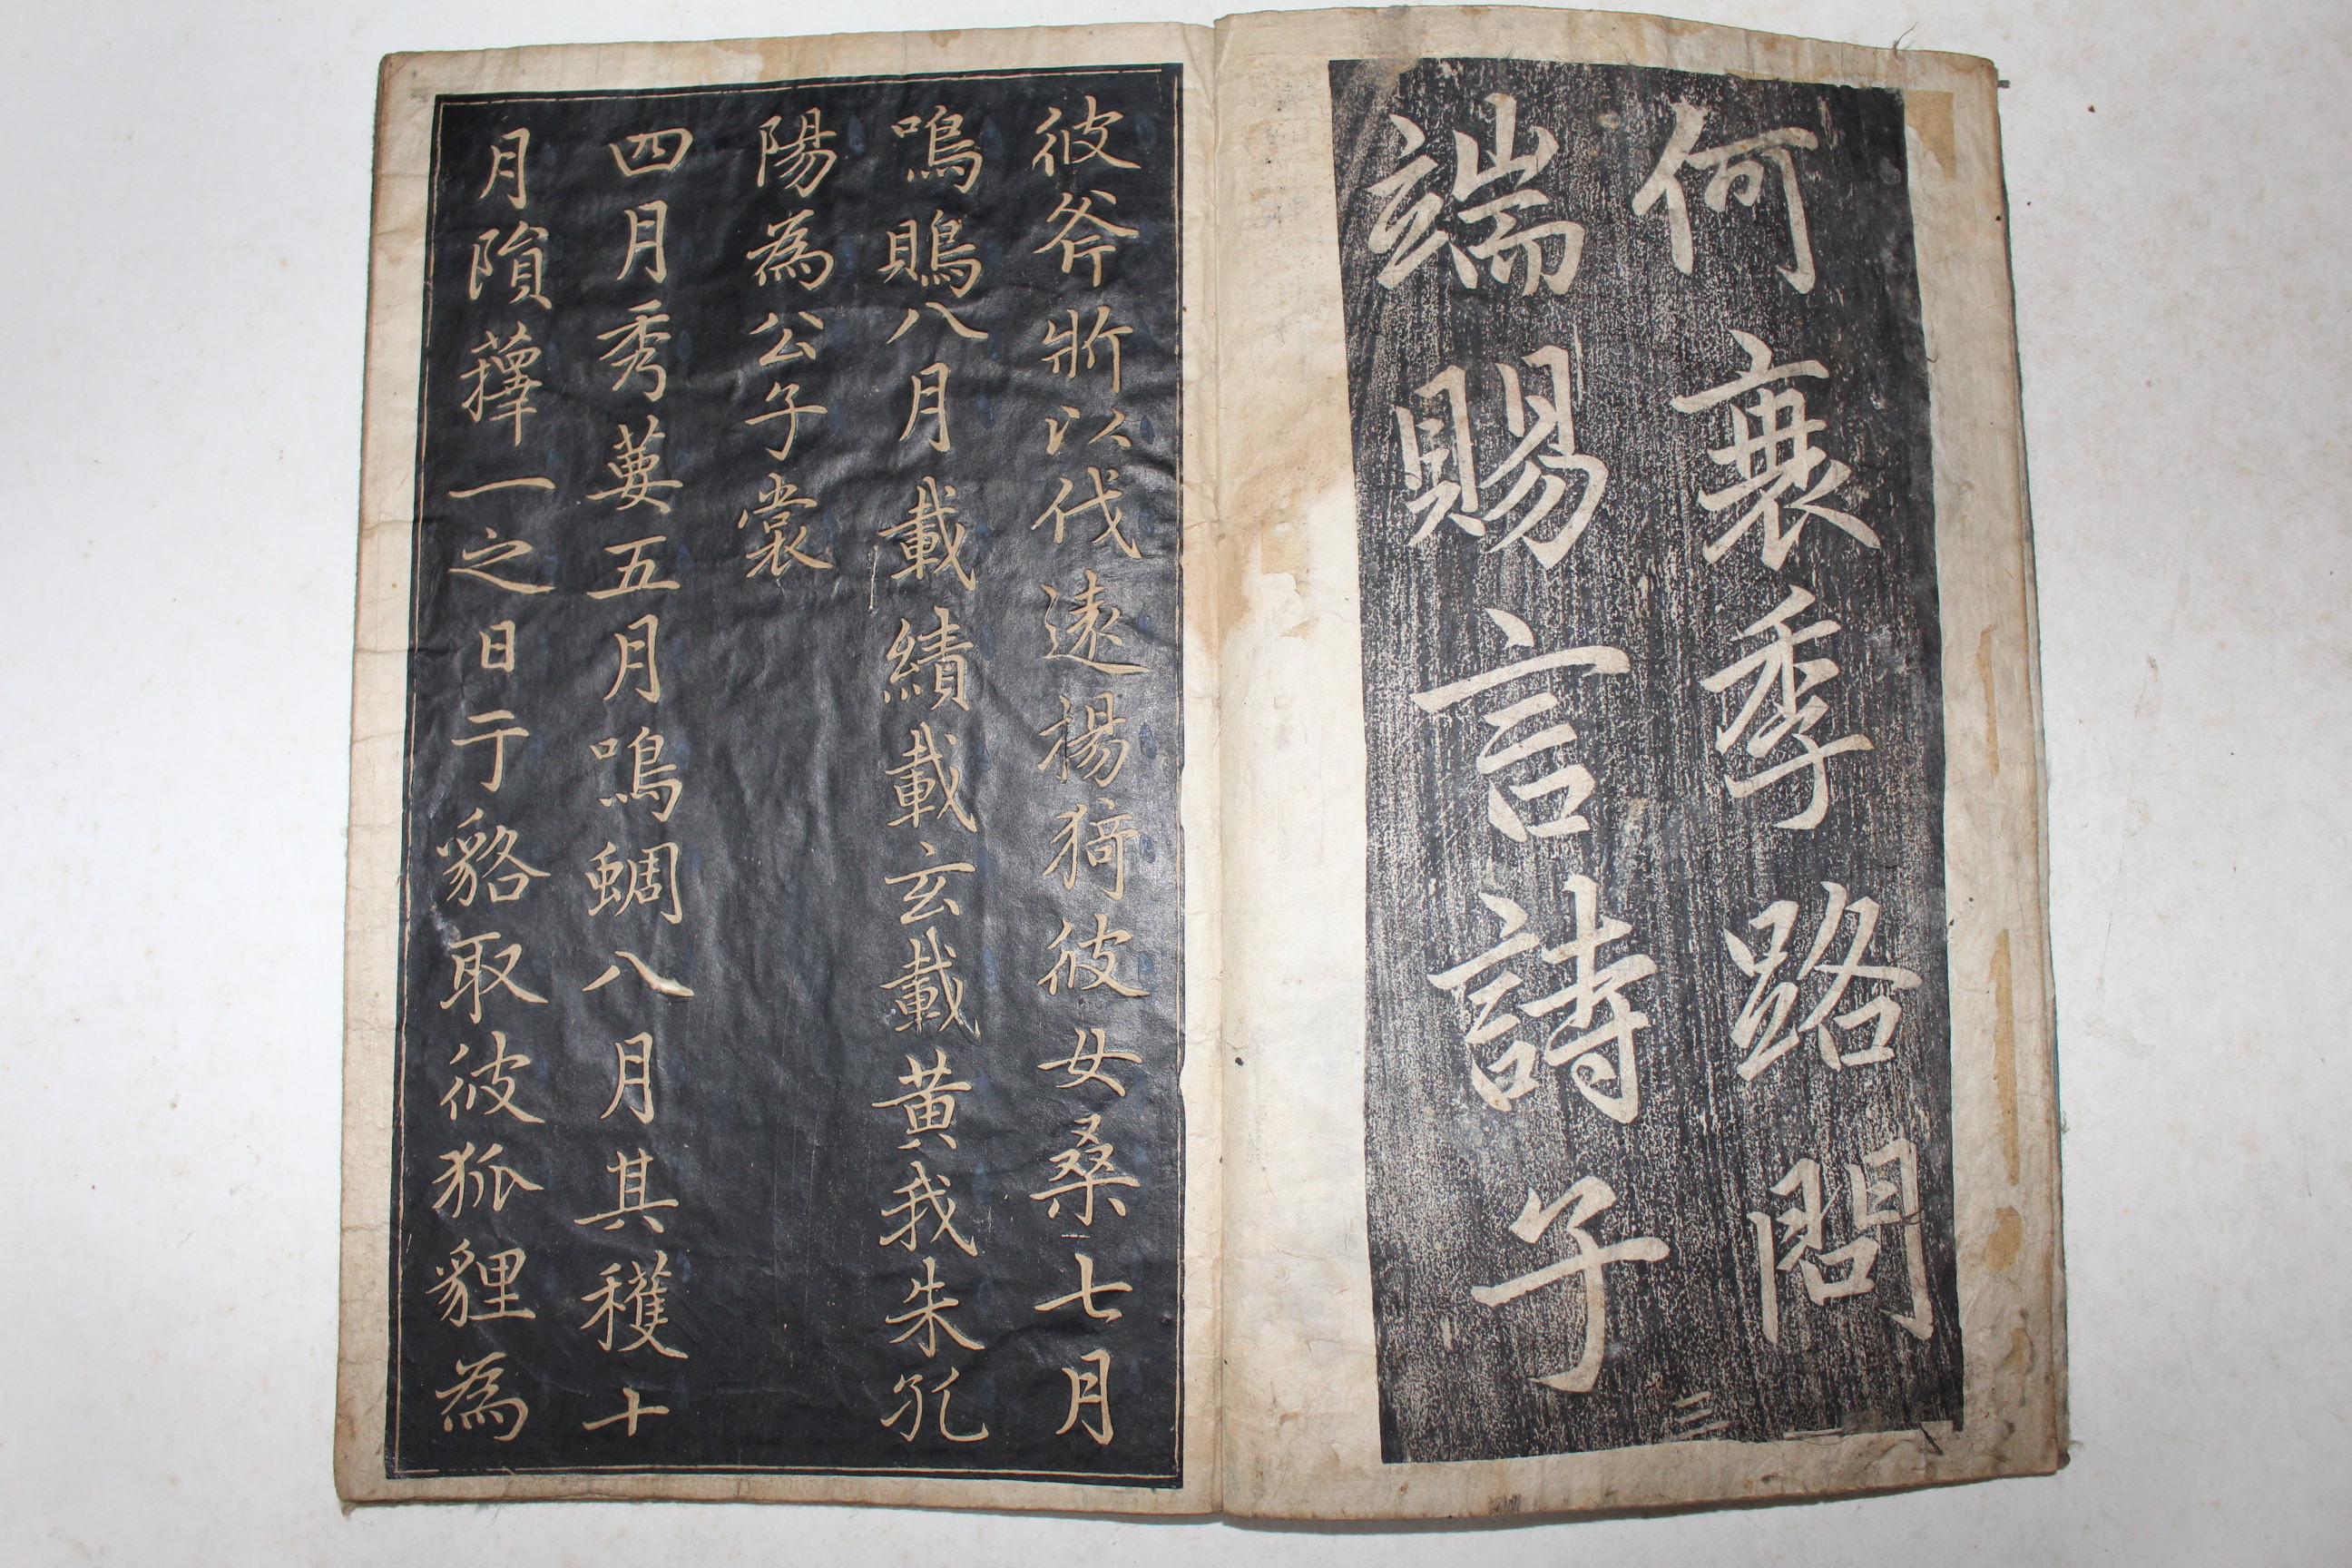 何衰季路問
端賜言詩子
三
彼斧斨以伐遠揚猗彼女桑七月
鳴鵙八月載績載玄載黃我朱孔
陽為公子裳
四月秀葽五月鳴蜩八月其穫十
月隕蘀一之日于貉取彼狐貍為